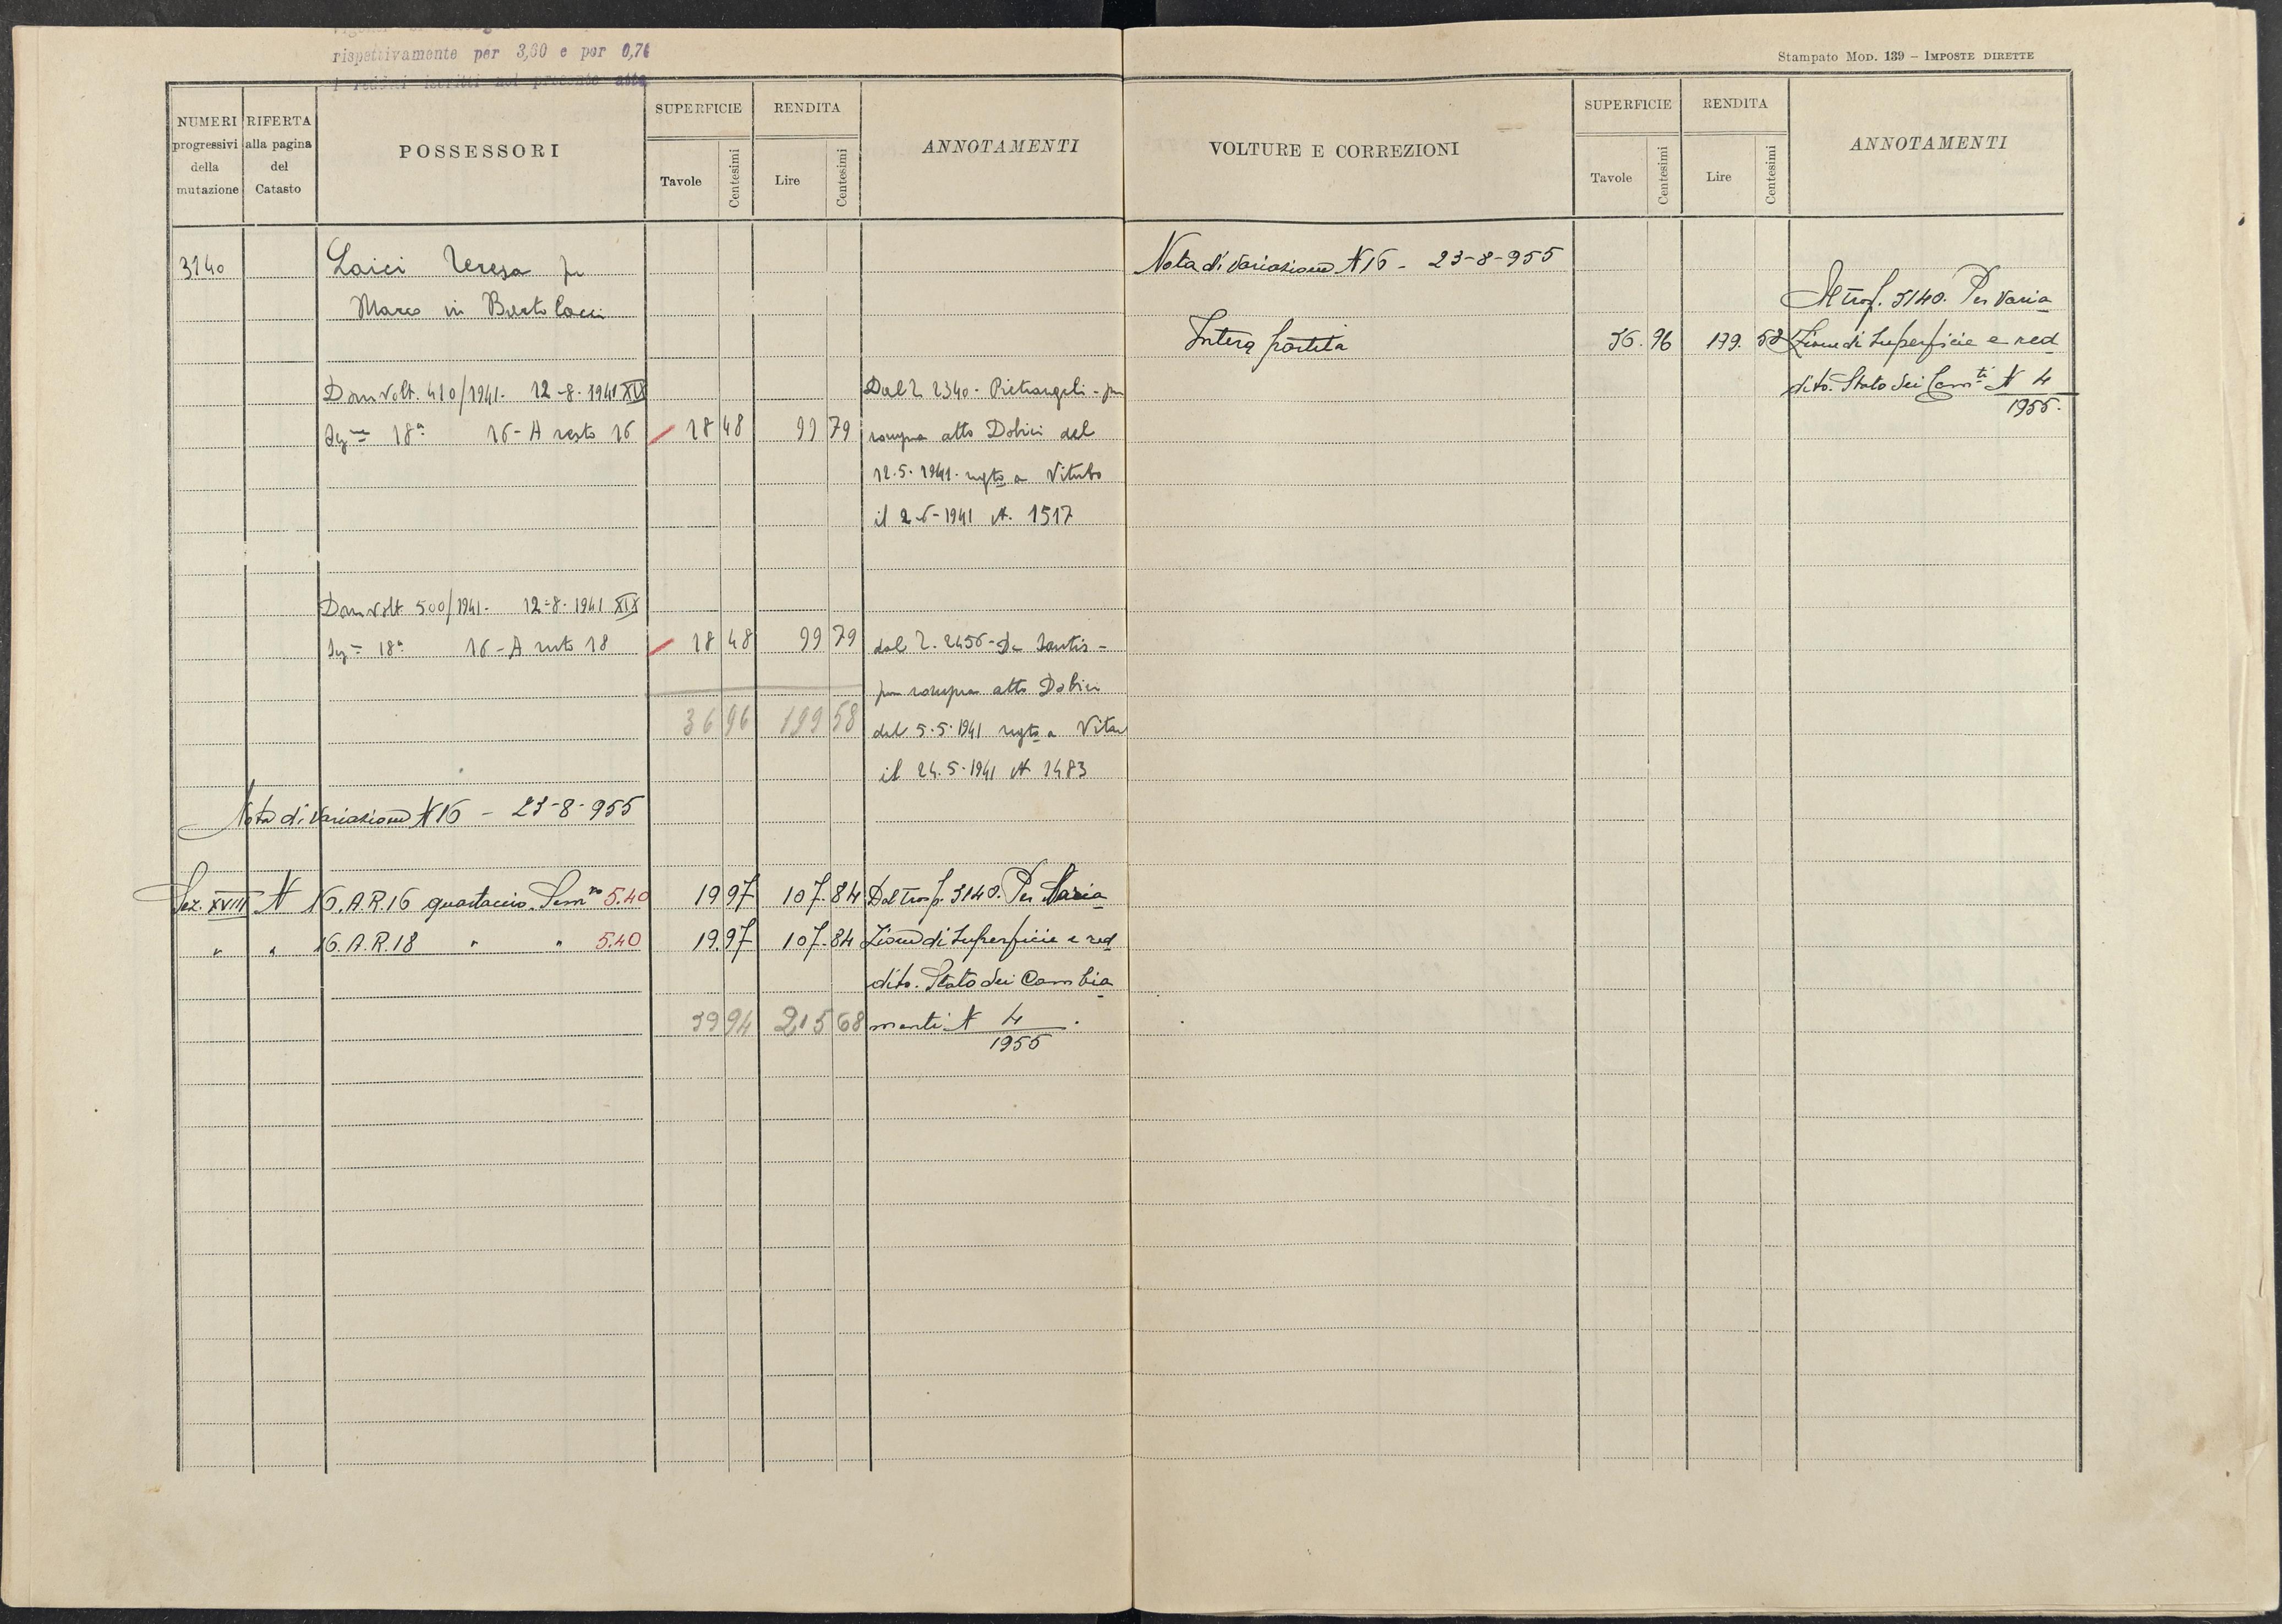 rispettivamente per 3,60 e per 0,76
i redditi iscritti nel presente atto
NUMERI progressivi della mutazione
RIFERTA alla pagina del Catasto
POSSESSORI
SUPERFICIE
Tavole
Centesimi
RENDITA
Lire
Centesimi
ANNOTAMENTI
3140
Laici Teresa fu
Marco in Bertolacci
Dom Volt. 410/1941. 12-8-1941 XIX
18ª 16-A resto 16 18 48 99 79
Dal 2340 - Pietrangeli - per
compra atto Dobici del
12.5.1941. regto a Viterbo
il 2-6-1941 N. 1517
Dom Volt 500/1941. 12-8-1941 XIX
18ª 16-A resto 18 18 48 99 79
dal 2456 - De Santis -
per compra atto Dobici
36 96 199 58
del 5.5.1941 regto a Viter
il 24.5.1941 N 1483
Nota di Variazione N 16 - 23-8-955
Sez. XVIII N 16.A.R.16 quartaccio. Sem.vo 5.40 19 97 107.84 Dal trasf. 3140. Per Varia
" " 16.A.R.18 " " 5.40 19.97 107.84 zione di Superficie e red
dito. Stato dei Cambia
39 94 215 68 menti N 4/1955.
Stampato MOD. 139 – IMPOSTE DIRETTE
VOLTURE E CORREZIONI
SUPERFICIE
Tavole
Centesimi
RENDITA
Lire
Centesimi
ANNOTAMENTI
Nota di Variazione N 16 - 23-8-955
Al trasf. 3140. Per Varia
Intera partita 36.96 199.58 zione di Superficie e red
dito. Stato dei Cam.ti N 4/1955.